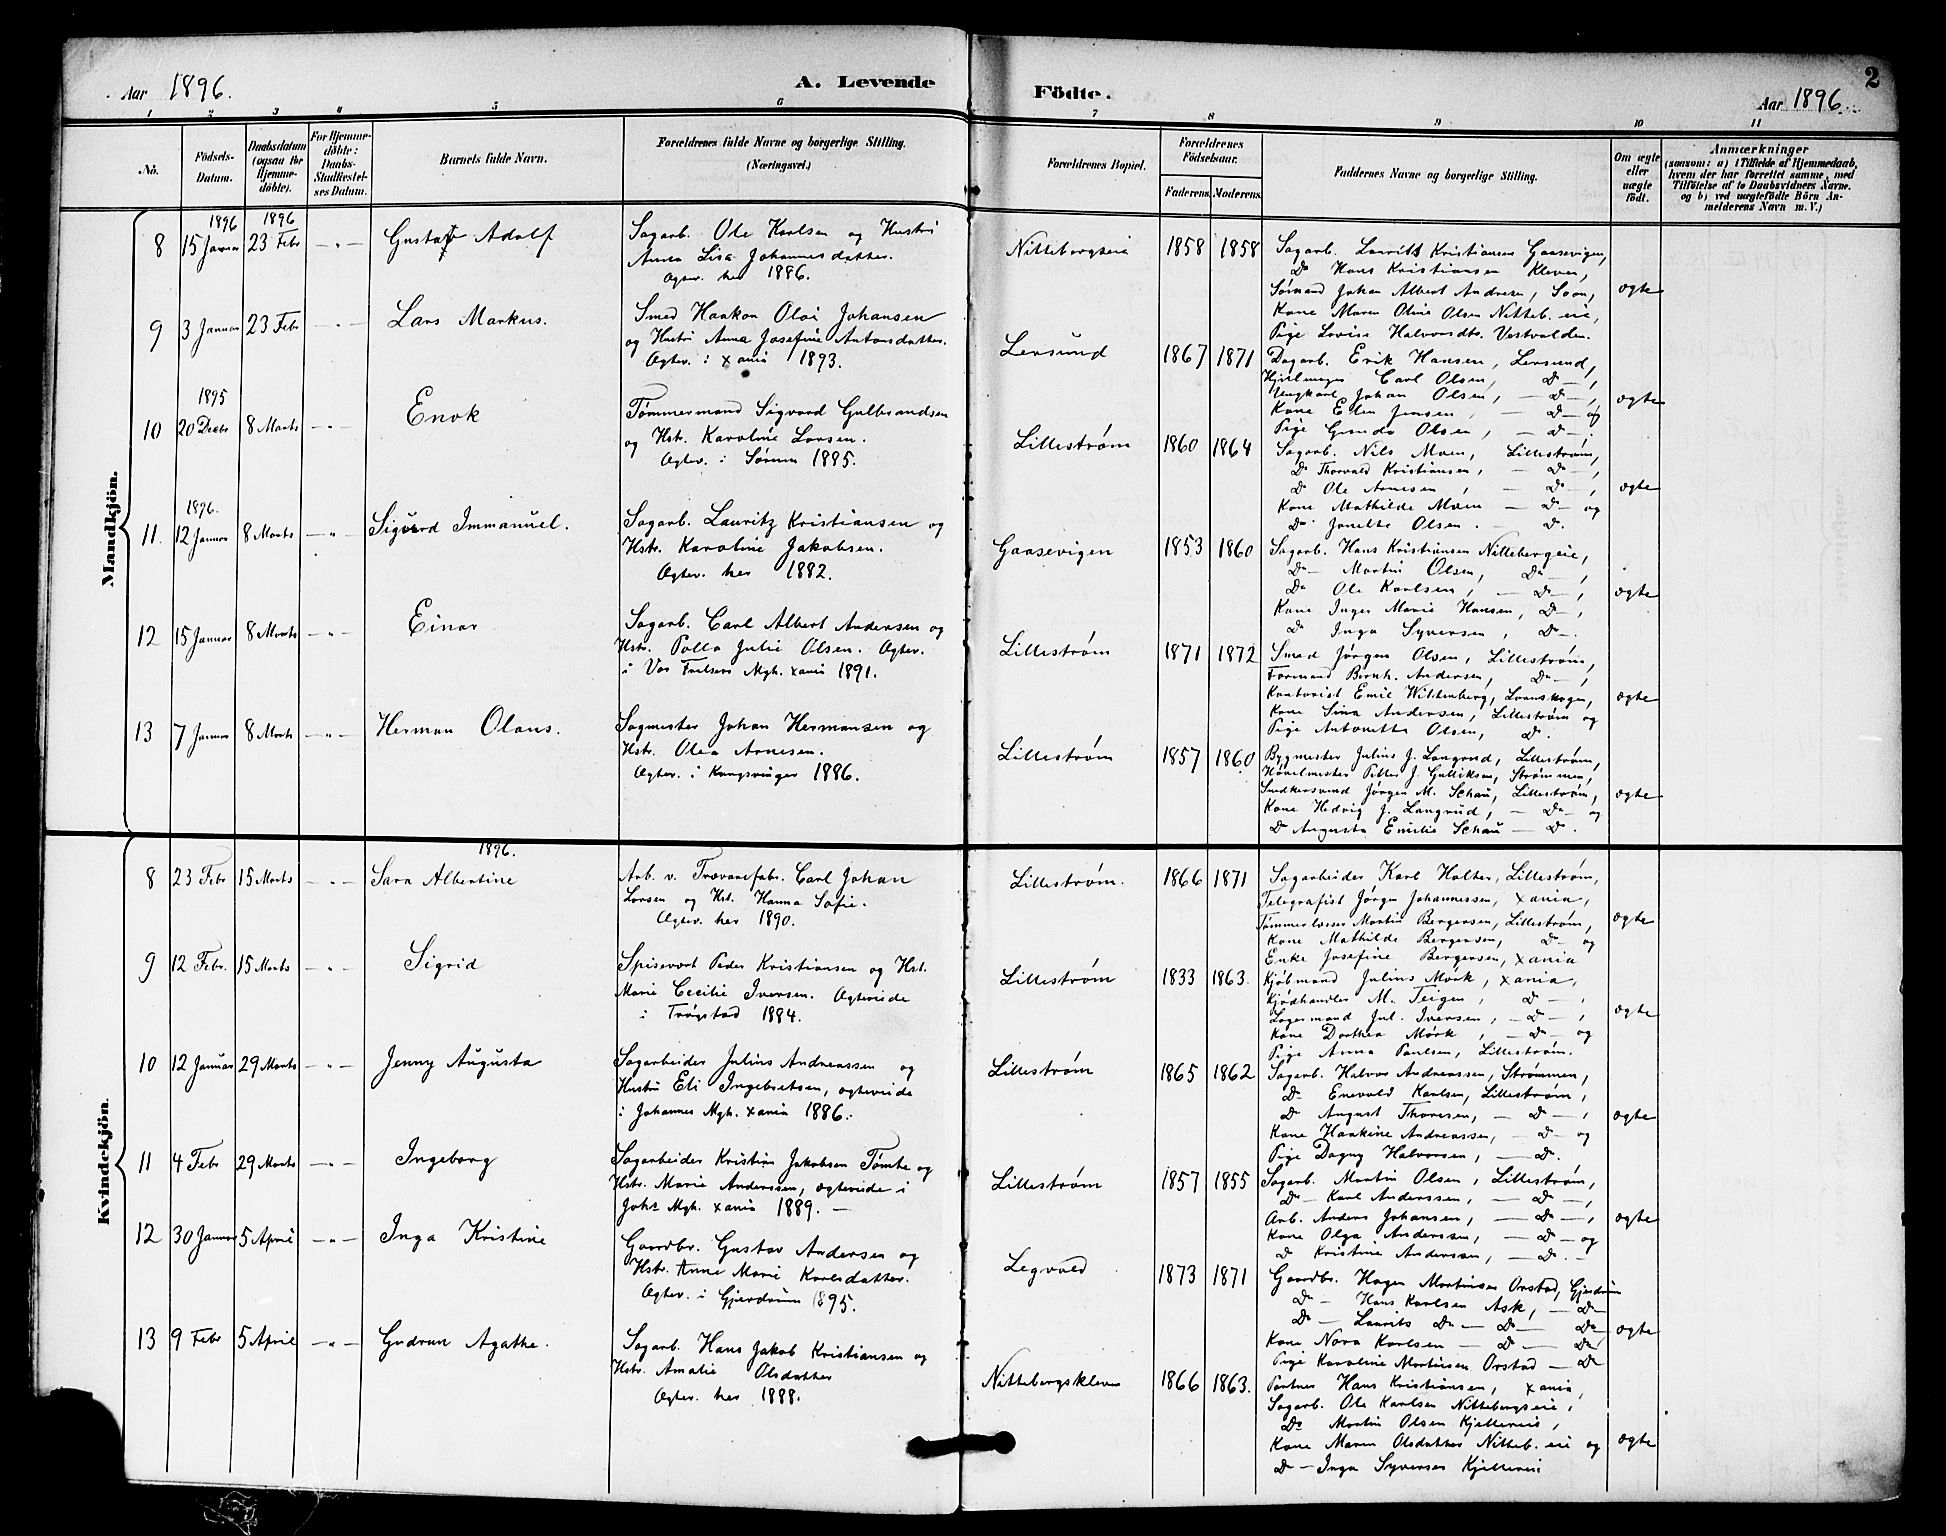 Aar 1896.
A. Levende
Födte.
2
Aar 1896.
1 2 3 4 5 6 7 8 9 10 11
No.
Födsels-Datum.
Daabsdatum (ogsaa for Hjemmedöbte).
For Hjemmedöbte: Daabs-Stadfæstelses Datum.
Barnets fulde Navn.
Forældrenes fulde Navne og borgerlige Stilling.
(Næringsvei.)
Forældrenes Bopæl.
Forældrenes Födselsaar.
Faderens.
Moderens.
Faddernes Navne og borgerlige Stilling.
Om ægte eller uægte födt.
Anmærkninger
(saasom: a) i Tilfælde af Hjemmedaab,
hvem der har forrettet samme, med
Tilföielse af to Daabsvidners Navne,
og b) ved uægtefödte Börn Anmelderens Navn m. V.)
Mandkjön.
1896 1896
8 15 Januar 23 Febr — " — Gustaf Adolf
Sagarb. Ole Karlsen og Hustru
Anna Lisa Johannesdatter.
Ægtev. her 1886.
Nittebergseie 1858 1858
Sagarb. Laurits Kristiansen Gaasevigen,
Do Hans Kristiansen Kleven,
Sømand Johan Albert Andresen, Soon,
Kone Maren Oline Olsen Nitteb. eie,
Pige Lovise Halvorsdtr. Vestvolden.
ægte
9 3 Januar 23 Febr — " — Lars Markus.
Smed Haakon Olai Johansen
og Hustru Anna Josefine Antonsdatter.
Ægtev. i Xania 1893.
Lersund 1867 1871
Dagarb. Erik Hansen, Lersund,
Carl Olsen, — Do —,
Ungkarl Johan Olsen, — Do —,
Kone Elen Jensen, — Do — og
Pige Gunda Olsen, — Do —.
ægte
1895
10 20 Decbr 8 Marts — " — Enok
Tømmermand Sigvard Gulbrandsen
og Hstr. Karoline Larsen.
Ægtev. i Sørum 1885.
Lillestrøm 1860 1864
Sagarb. Nils Moen, Lillestrøm,
Do Thorvald Kristiansen, — Do —,
Do Ole Arnesen, — Do —,
Kone Mathilde Moen — Do — og
Do Janette Olsen. — Do.
ægte
1896.
11. 12 Januar 8 Marts — " — Sigurd Immanuel.
Sagarb. Lauritz Kristiansen og
Hstr. Karoline Jakobsen.
Ægtev. her 1882.
Gaasevigen 1853 1860
Sagarb. Hans Kristiansen Nittebergeie,
Do — Martin Olsen, Do —,
Do Ole Karlsen, — Do —,
Kone Inger Marie Hansen, Do —,
Do Inga Syversen, Do —.
ægte
12 15 Januar 8 Marts — " — Einar
Sagarb. Carl Albert Andersen og
Hstr. Palla Julie Olsen. Ægtev.
i Vor Frelsers Mgh. Xania 1891.
Lillestrøm 1871 1872
Smed Jørgen Olsen, Lillestrøm,
Formand Bernh. Andersen, Do —,
Kontorist Emil Wittenberg, Lørenskogen,
Kone Sina Andersen, Lillestrøm og
Pige Antonette Olsen, Do.
ægte
13 7 Januar 8 Marts — " — Herman Olaus.
Sagmester Johan Hermansen og
Hstr. Olea Arnesen.
Ægtev. i Kongsvinger 1886.
Lillestrøm 1857 1860
Bygmester Julius J. Langrud, Lillestrøm,
Høvelmester Petter J. Gulliksen, Strømmen,
Snedkersvend Jørgen M. Schau, Lillestrøm,
Kone Hedvig J. Langrud, — Do — og
Do Augusta Emilie Schau — Do.
ægte
Kvindekjön.
1896.
8 23 Febr 15 Marts — " — Sara Albertine
Arb. v. Trævarefabr. Carl Johan
Larsen og Hst. Hanna Sofie.
Ægtev. her 1890.
Lillestrøm. 1866 1871
Sagarbeider Karl Holter, Lillestrøm,
Telegrafist Jørgen Johannessen, Xania,
Martin Bergersen, Lillestrøm,
Kone Mathilde Bergersen, Do — og
Enke Josefine Bergersen, Xania
ægte
9 12 Febr. 15 Marts — " — Sigrid
Spisevært Peder Kristiansen og Hst.
Marie Cecilie Iversen. Ægteviede
i Trøgstad 1884.
Lillestrøm 1833 1863.
Kjøbmand Julius Mørk, Xania,
Kjødhandler M. Teigen, — Do —,
Lagermand Jul. Iversen, — Do —,
Kone Dorthea Mørk, — Do — og
Pige Anna Paulsen, Lillestrøm.
ægte
10 12 Januar 29 Marts — " — Jenny Augusta
Sagarbeider Julius Andreassen og
Hustru Eli Ingebretsen, ægteviede
i Johannes Mgh. Xania 1886.
Lillestrøm 1865 1862
Sagarb. Halvor Andreassen, Strømmen,
Do — Enevald Karlsen, Lillestrøm,
Do August Thoresen, — Do —,
Kone Haakine Andreassen, — Do — og
Pige Dagny Halvorsen, — Do.
ægte
11 4 Febr 29 Marts — " — Ingeborg
Sagarbeider Kristian Jakobsen Tømte og
Hstr. Marie Anderssen, ægteviede i
Johs Mgh. Xania 1889. —
Lillestrøm 1857 1855
Sagarb. Martin Olsen, Lillestrøm,
Do — Karl Anderssen, — Do —,
Arb. Anders Johansen, — Do —,
Kone Olga Anderssen, — Do — og
Do Kristine Anderssen, — Do. —
ægte
12 30 Januar 5 April — " — Inga Kristine
Gaardbr. Gustav Andersen og
Hstr. Anne Marie Karlsdatter.
Ægtev. i Gjerdrum 1895.
Legvold 1873 1871
Gaardbr. Hagen Martinsen Orstad, Gjerdrum
Do — Hans Karlsen Ask, — Do —
Do — Laurits Do — Do — Do
Kone Nora Karlsen — Do — Do
Pige Karoline Martinsen Orstad — Do
ægte
13 9 Febr 5 April — " — Gudrun Agathe.
Sagarb. Hans Jakob Kristiansen og
Hstr. Amalie Olsdatter
Ægtev. her 1888.
Nittebergskleven 1866 1863.
Portner Hans Kristiansen, Xania,
Sagarb. Ole Karlsen Nittebergseie,
Do Martin Olsen Kjellereie,
Kone Maren Olsdatter Nitteb. eie og
Do — Inga Syversen Kjellereie
ægte